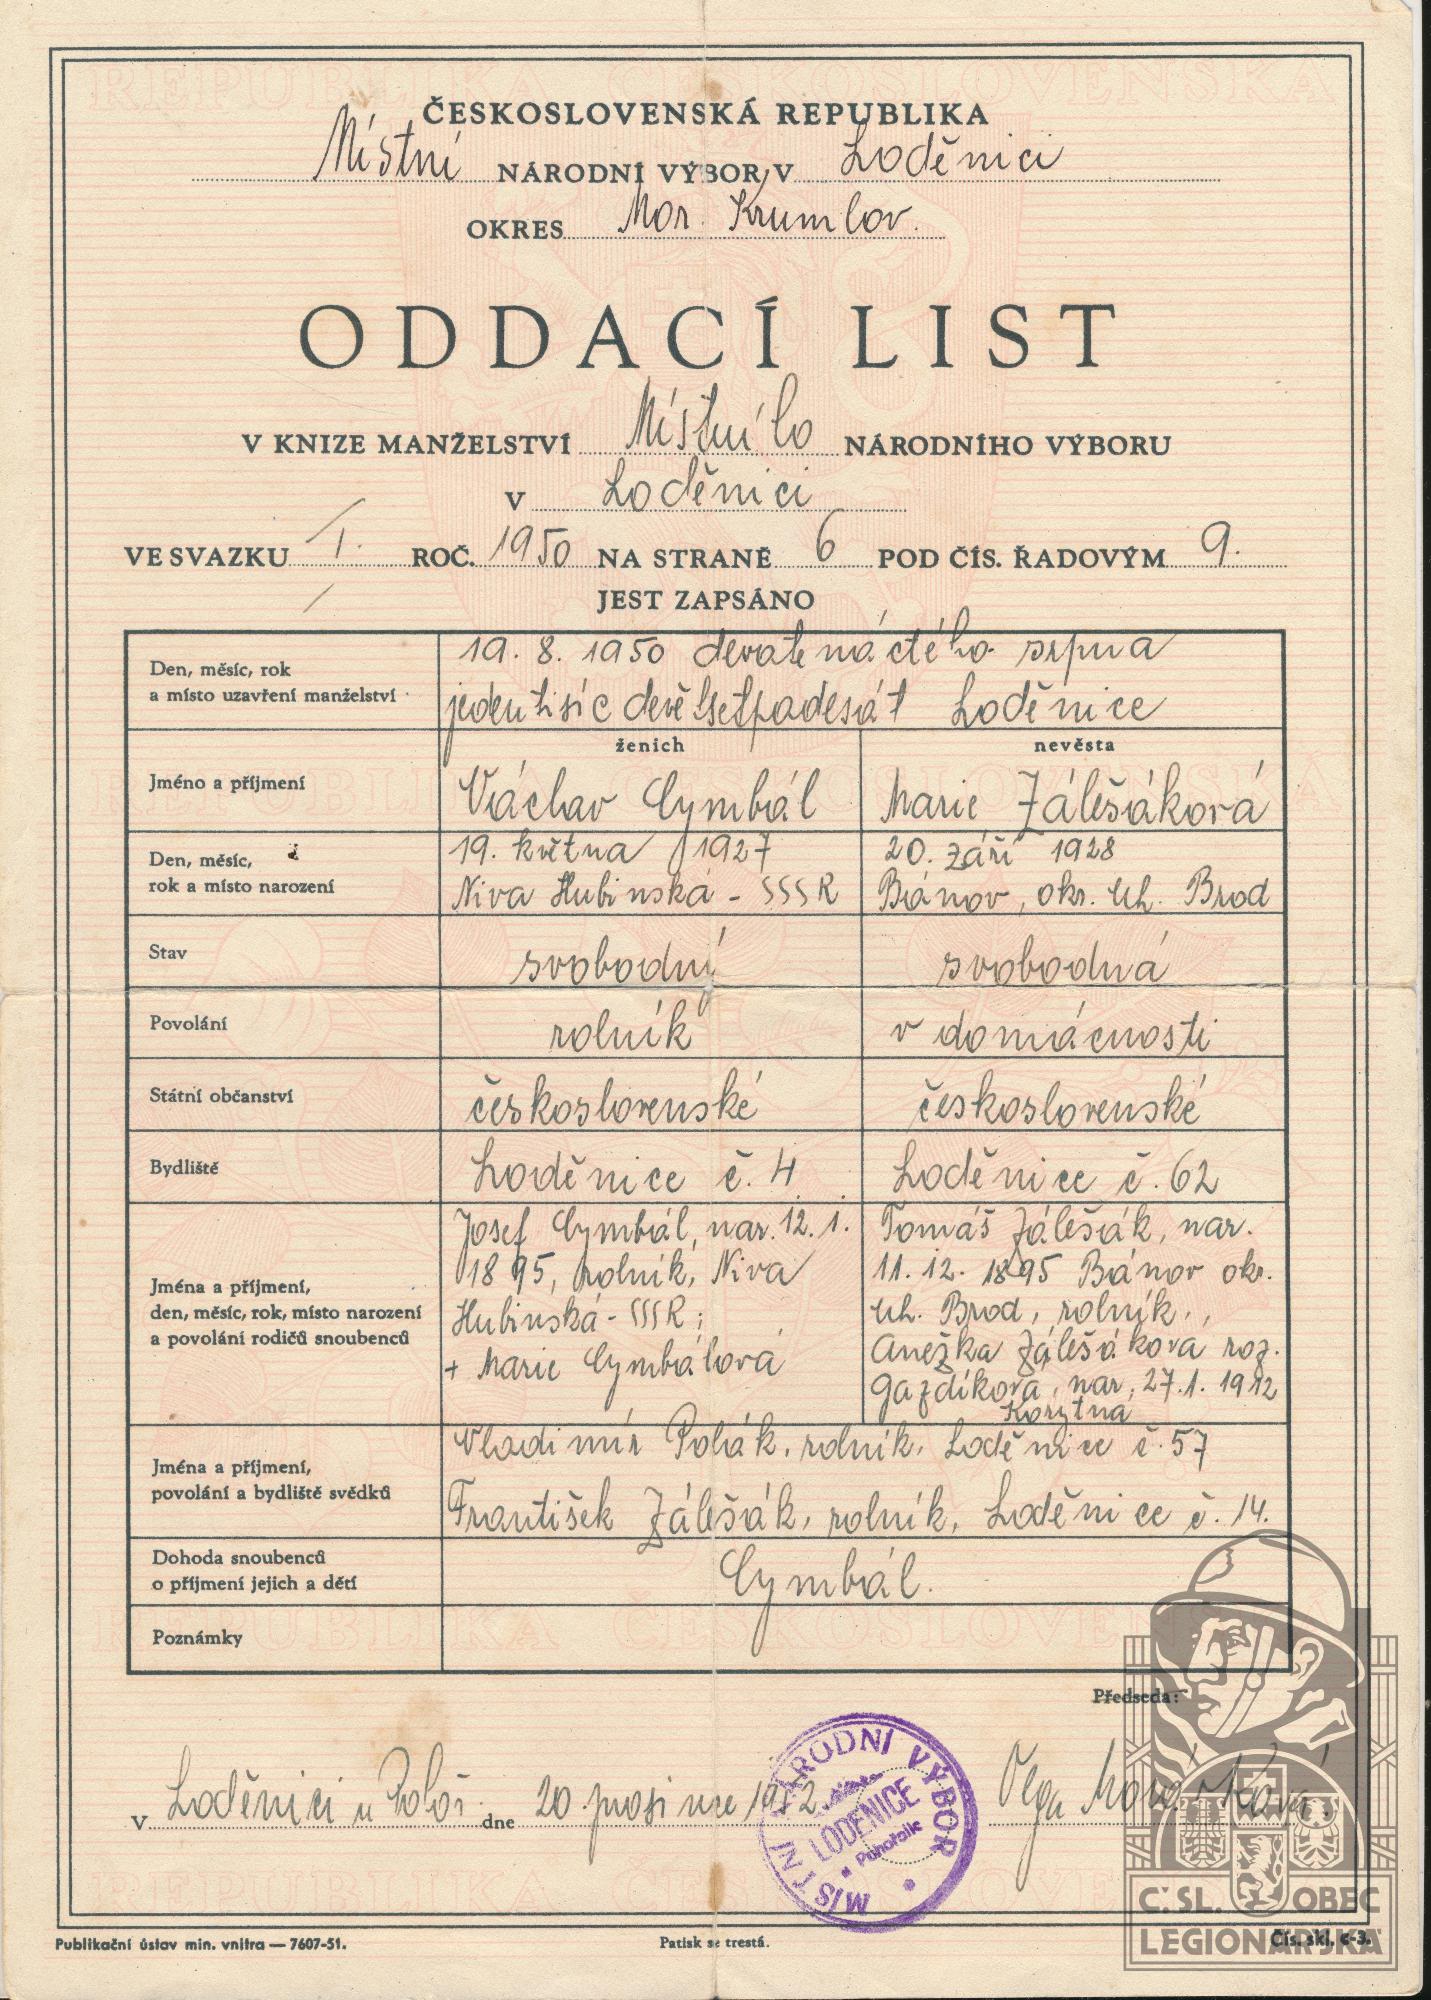 ČESKOSLOVENSKÁ REPUBLIKA
Místní NÁRODNÍ VÝBOR V Loděnici
OKRES Mor. Krumlov.
ODDACÍ LIST
V KNIZE MANŽELSTVÍ Místního NÁRODNÍHO VÝBORU
V Loděnici
VE SVAZKU I. ROČ. 1950 NA STRANĚ 6 POD ČÍS. ŘADOVÝM 9.
JEST ZAPSÁNO
Den, měsíc, rok
a místo uzavření manželství
19. 8. 1950 devatenáctého srpna
jedentisíc devětsetpadesát Loděnice
ženich nevěsta
Jméno a příjmení Václav Cymbál Marie Zálešáková
Den, měsíc,
rok a místo narození
19. května 1927 20. září 1928
Niva Hubinská - SSSR Bánov, okr. Uh. Brod
Stav svobodný svobodná
Povolání rolník v domácnosti
Státní občanství československé československé
Bydliště Loděnice č. 4 Loděnice č. 62
Jména a příjmení,
den, měsíc, rok, místo narození
a povolání rodičů snoubenců
Josef Cymbál, nar. 12. 1.
1895, rolník, Niva
Hubinská - SSSR;
+ Marie Cymbálová
Tomáš Zálešák, nar.
11. 12. 1895 Bánov okr.
Uh. Brod, rolník,
Anežka Zálešáková roz.
Gazdíková, nar. 27. 1. 1912
Korytná
Jména a příjmení,
povolání a bydliště svědků
Vladimír Polák, rolník, Loděnice č. 57
František Zálešák, rolník, Loděnice č. 14.
Dohoda snoubenců
o příjmení jejich a dětí
Cymbál.
Poznámky
Předseda:
V Loděnici u Pohoř. dne 20. prosince 1952
Olga
MÍSTNÍ NÁRODNÍ VÝBOR
LODĚNICE
Pohořelic
Publikační ústav min. vnitra — 7607-51.
Patisk se trestá.
Čís. skl. c-3.
Č. SL. OBEC
LEGIONÁŘSKÁ
REPUBLIKA ČESKOSLOVENSKÁ